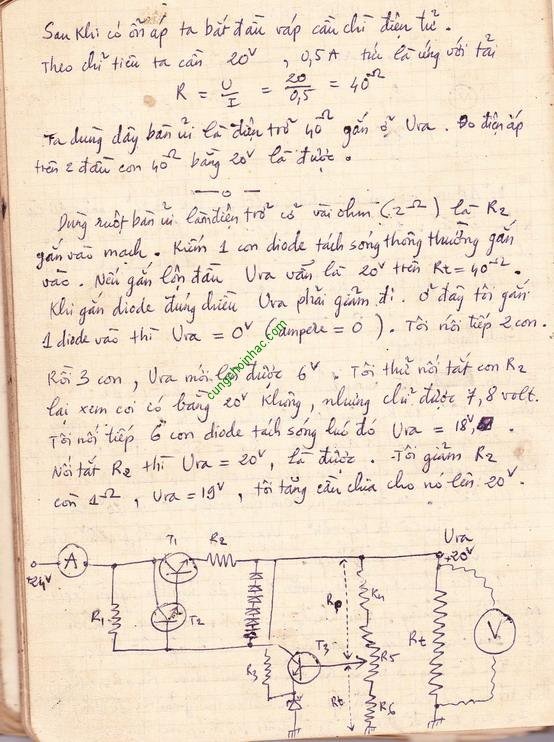 Sau khi có ổn áp ta bắt đầu ráp cầu chì điện tử.
Theo chỉ tiêu ta cần 20V, 0,5A tức là ứng với tải
R = U/I = 20/0,5 = 40Ω
Ta dùng dây bàn ủi là điện trở 40Ω gắn ở Ura. Đo điện áp
trên 2 đầu con 40Ω bằng 20V là được.
— o —
Dùng ruột bàn ủi làm điện trở cỡ vài ohm (2Ω) là R2
gắn vào mạch. Kiếm 1 con diode tách sóng thông thường gắn
vào. Nếu gắn lộn đầu Ura vẫn là 20V trên Rt = 40Ω.
Khi gắn diode đúng chiều Ura phải giảm đi. Ở đây tôi gắn
1 diode vào thì Ura = 0V (ampere = 0). Tôi nối tiếp 2 con.
Rồi 3 con, Ura mới lại được 6V. Tôi thử nối tắt con R2
lại xem coi có bằng 20V không, nhưng chỉ được 7,8 volt.
Tôi nối tiếp 6 con diode tách sóng lúc đó Ura = 18V.
Nối tắt R2 thì Ura = 20V, là được. Tôi giảm R2
còn 1Ω, Ura = 19V, tôi tăng cầu chia cho nó lên 20V.
cungchoinhac.com
+24V
A
T1
R2
Ura
+20V
R1
T2
Rp
R4
Rt
V
R3
T3
R5
Rt
R6